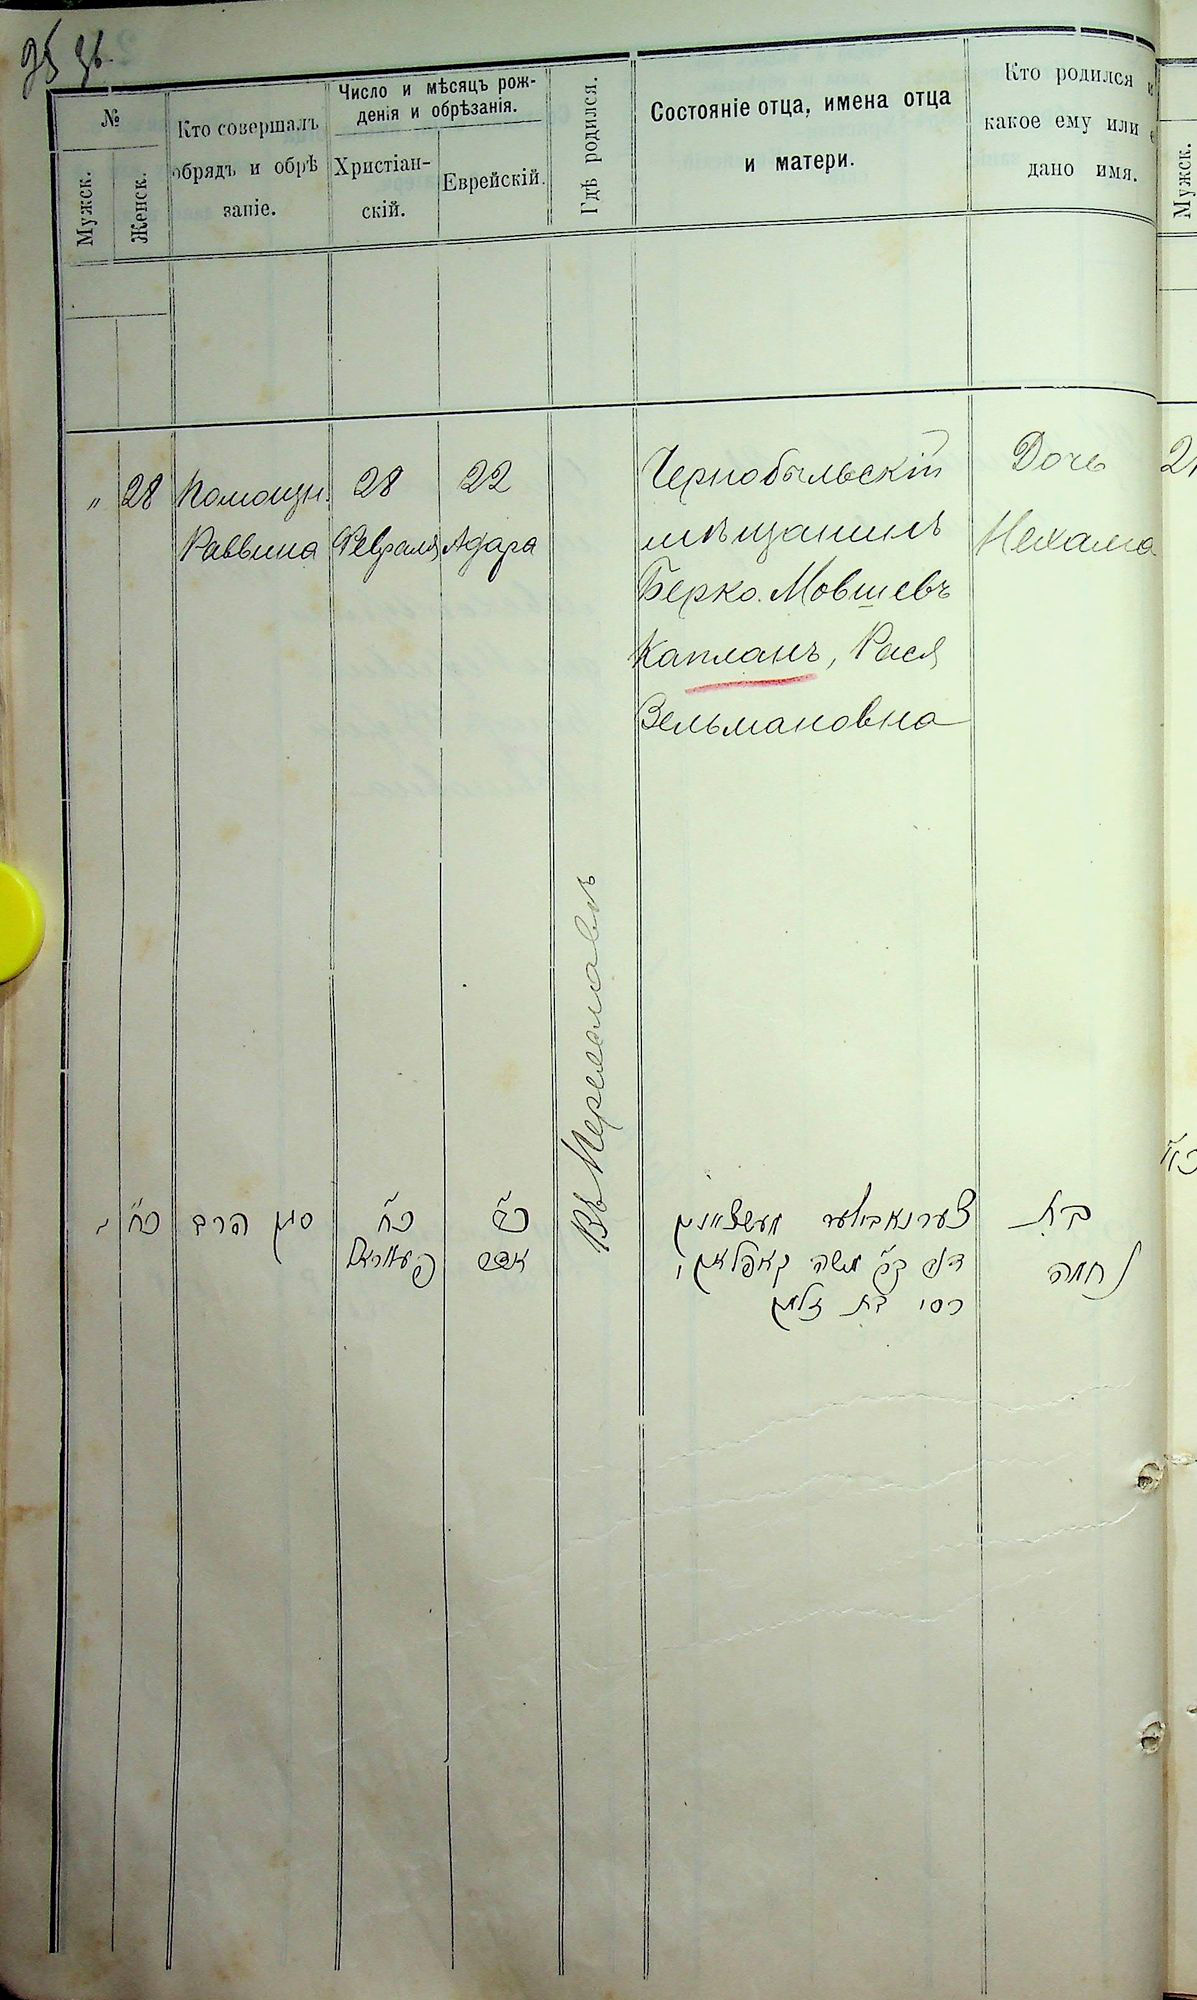 №
Мужск.
Женск.
Кто совершалъ
обрядъ и обрѣ
заніе.
Число и мѣсяцъ рож-
денія и обрѣзанія.
Христіан-
скій.
Еврейскій.
Гдѣ родился.
Состояніе отца, имена отца
и матери.
Кто родился и
какое ему или
дано имя.
Мужск.
" 28
Помощн.
Раввина
28
Февраля
22
Адара
Въ Переяславлѣ
Чернобыльскій
мѣщанинъ
Берко Мовшевъ
Капланъ, Рася
Зельмановна
Дочь
Нехама
כ״ח
סגן הרב
כ״ח
פעווראל
כ״ב
אדר
צערנאבילער מעשצאנין
משה קאפלאן,
רסי בת זלמן
בת
נחמה